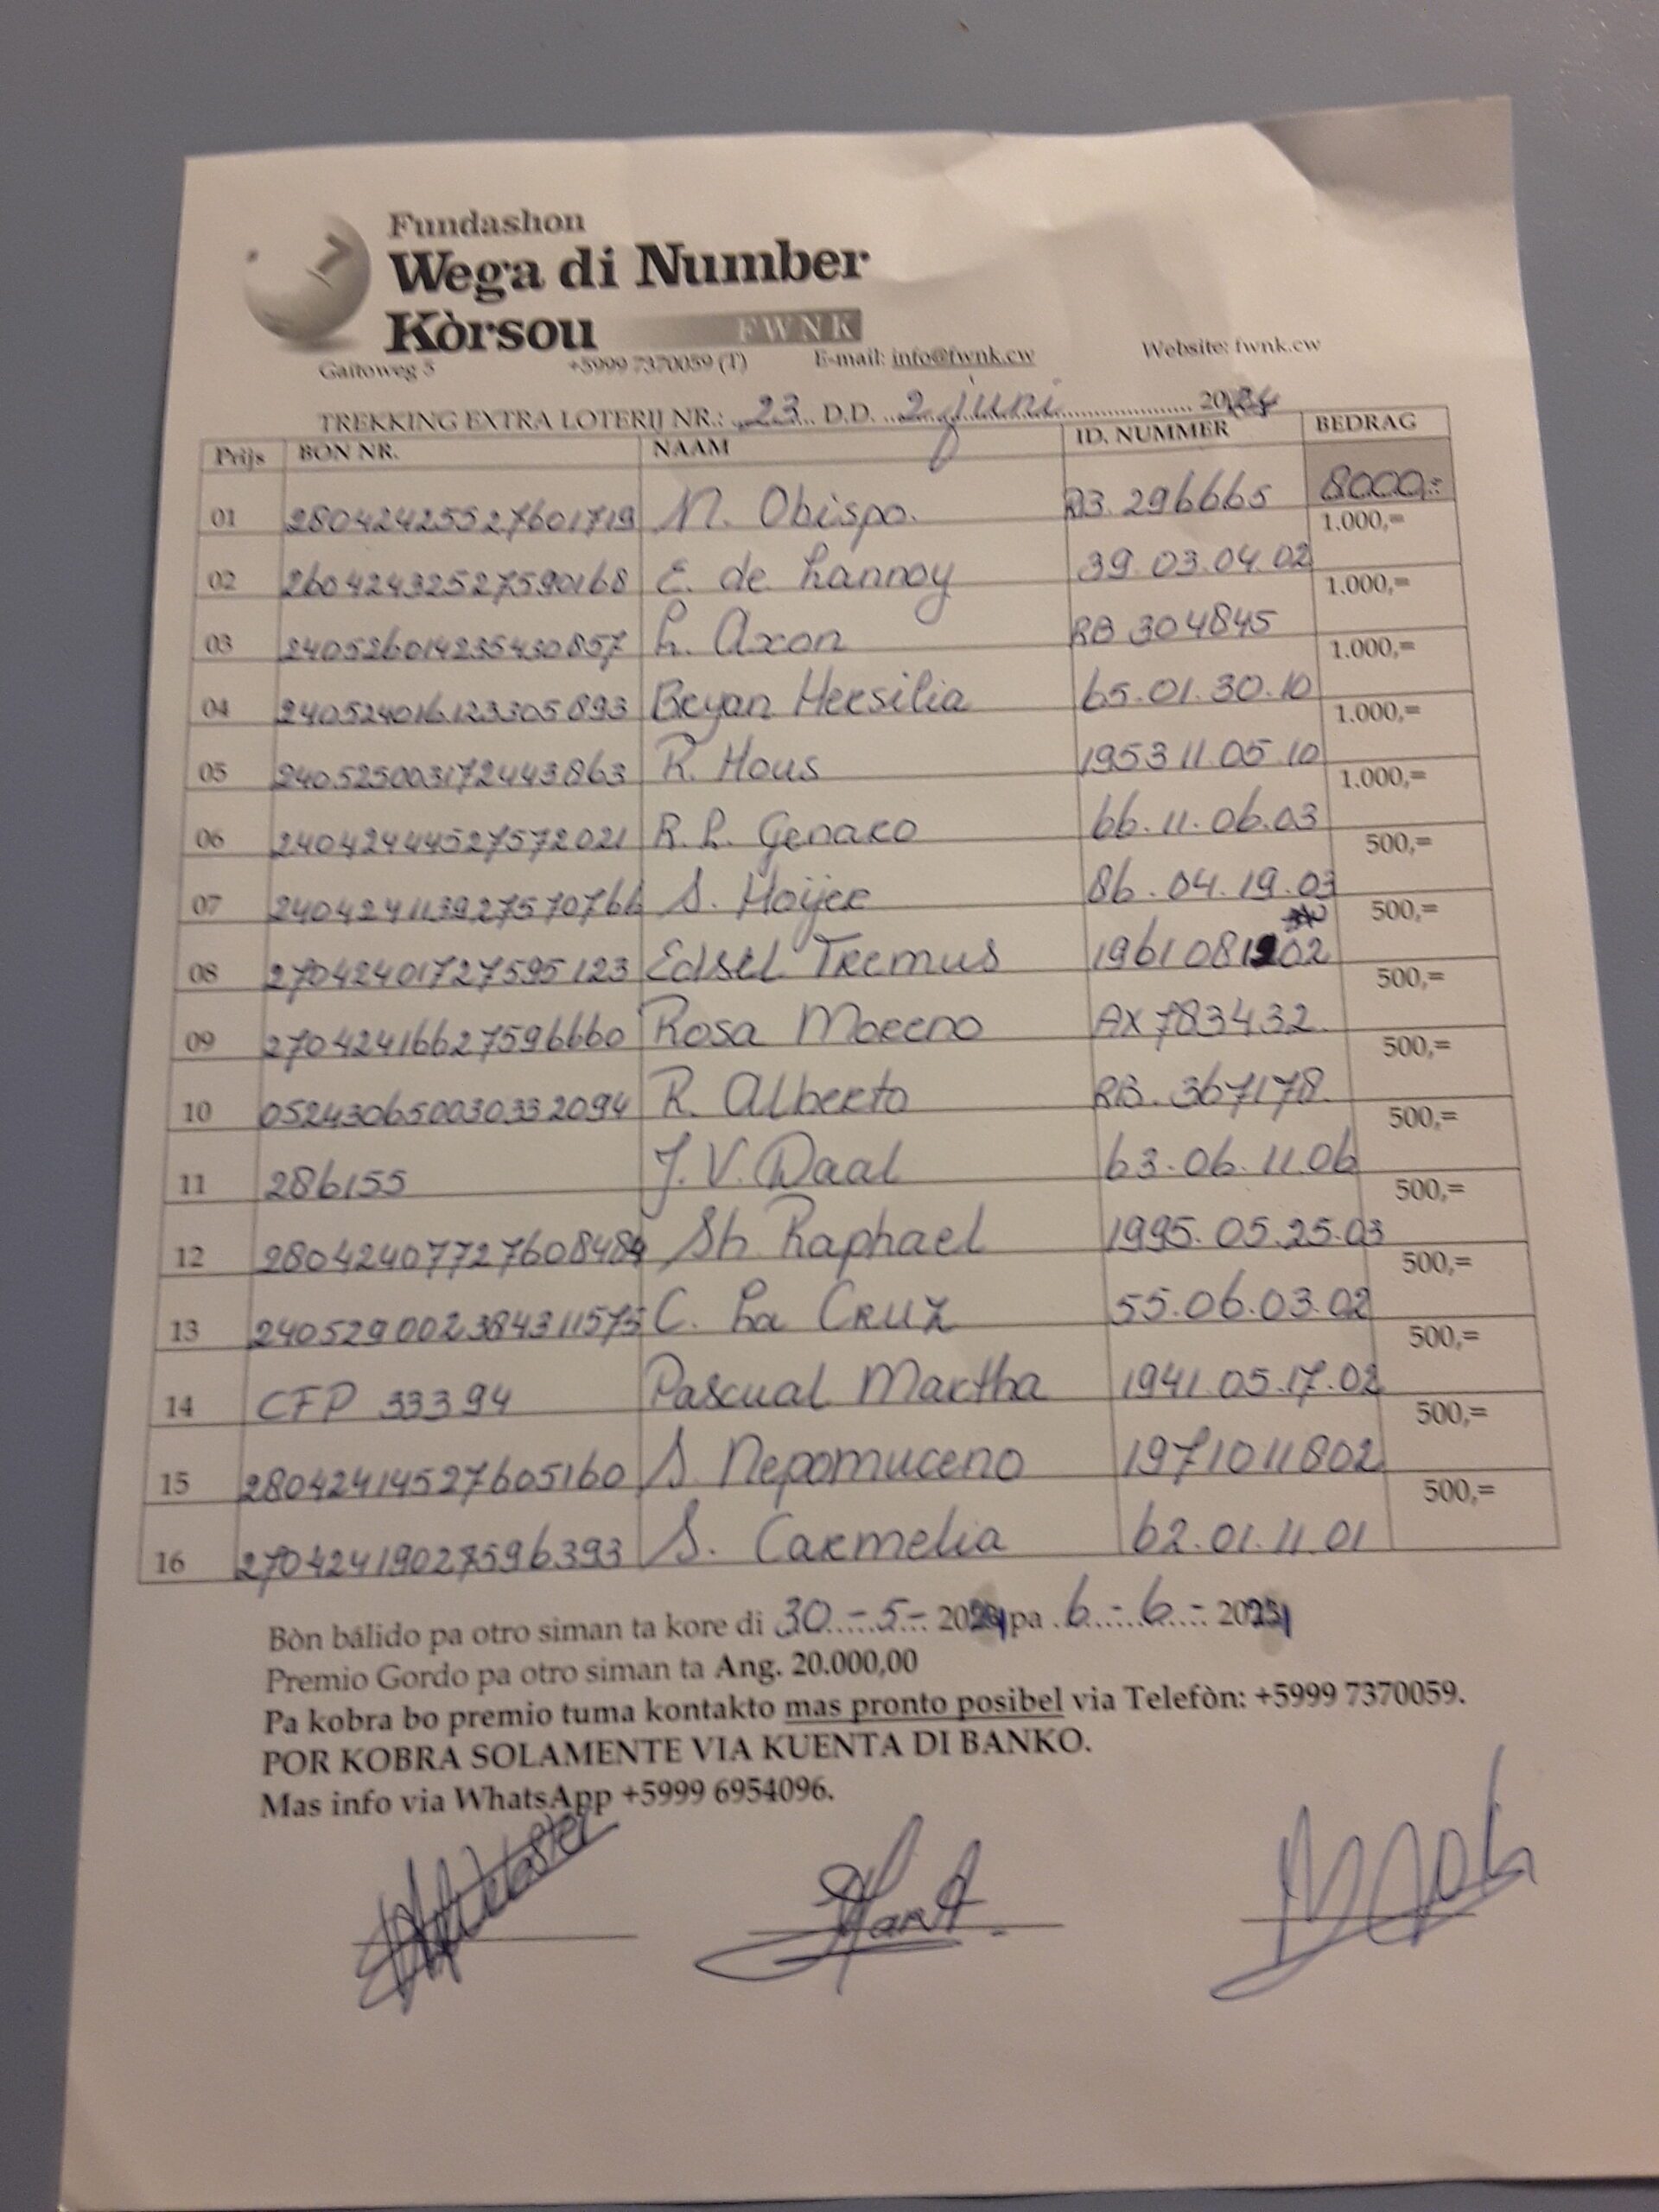 Fundashon
Wega di Number
Kòrsou FWNK
Gaitoweg 5 +5999 7370059 (T) E-mail: info@fwnk.cw Website: fwnk.cw
TREKKING EXTRA LOTERIJ NR.: 23 D.D. 2 juni 2024
Prijs BON NR. NAAM ID. NUMMER BEDRAG
01 28042425527601719 N. Obispo. RB. 296665 8000,=
02 26042432527590168 E. de Lannoy 39.03.04.02 1.000,=
03 240526014235430857 L. Axon RB 304845 1.000,=
04 240524016123305893 Bryan Hersilia 65.01.30.10 1.000,=
05 240525003172443863 R. Hous 1953 11.05.10 1.000,=
06 24042444527572021 R.L. Genaro 66.11.06.03 1.000,=
07 240424113927570766 S. Hoijer 86.04.19.03 500,=
08 27042401727595123 Edsel Tremus 1961081902 500,=
09 27042416627596660 Rosa Moreno AX 783432 500,=
10 0524306500303332094 R. Alberto RB. 367178 500,=
11 286155 J.V. Daal 63.06.11.06 500,=
12 28042407727608484 Sh. Raphael 1995.05.25.03 500,=
13 240529002384311575 C. La Cruz 55.06.03.02 500,=
14 CFP 33394 Pascual Martha 1941.05.17.02 500,=
15 28042414527605160 S. Nepomuceno 1971011802 500,=
16 27042419027596393 S. Carmelia 62.01.11.01 500,=
Bòn bálido pa otro siman ta kore di 30-5-2024 pa 6-6-2024
Premio Gordo pa otro siman ta Ang. 20.000,00
Pa kobra bo premio tuma kontakto mas pronto posibel via Telefòn: +5999 7370059.
POR KOBRA SOLAMENTE VIA KUENTA DI BANKO.
Mas info via WhatsApp +5999 6954096.